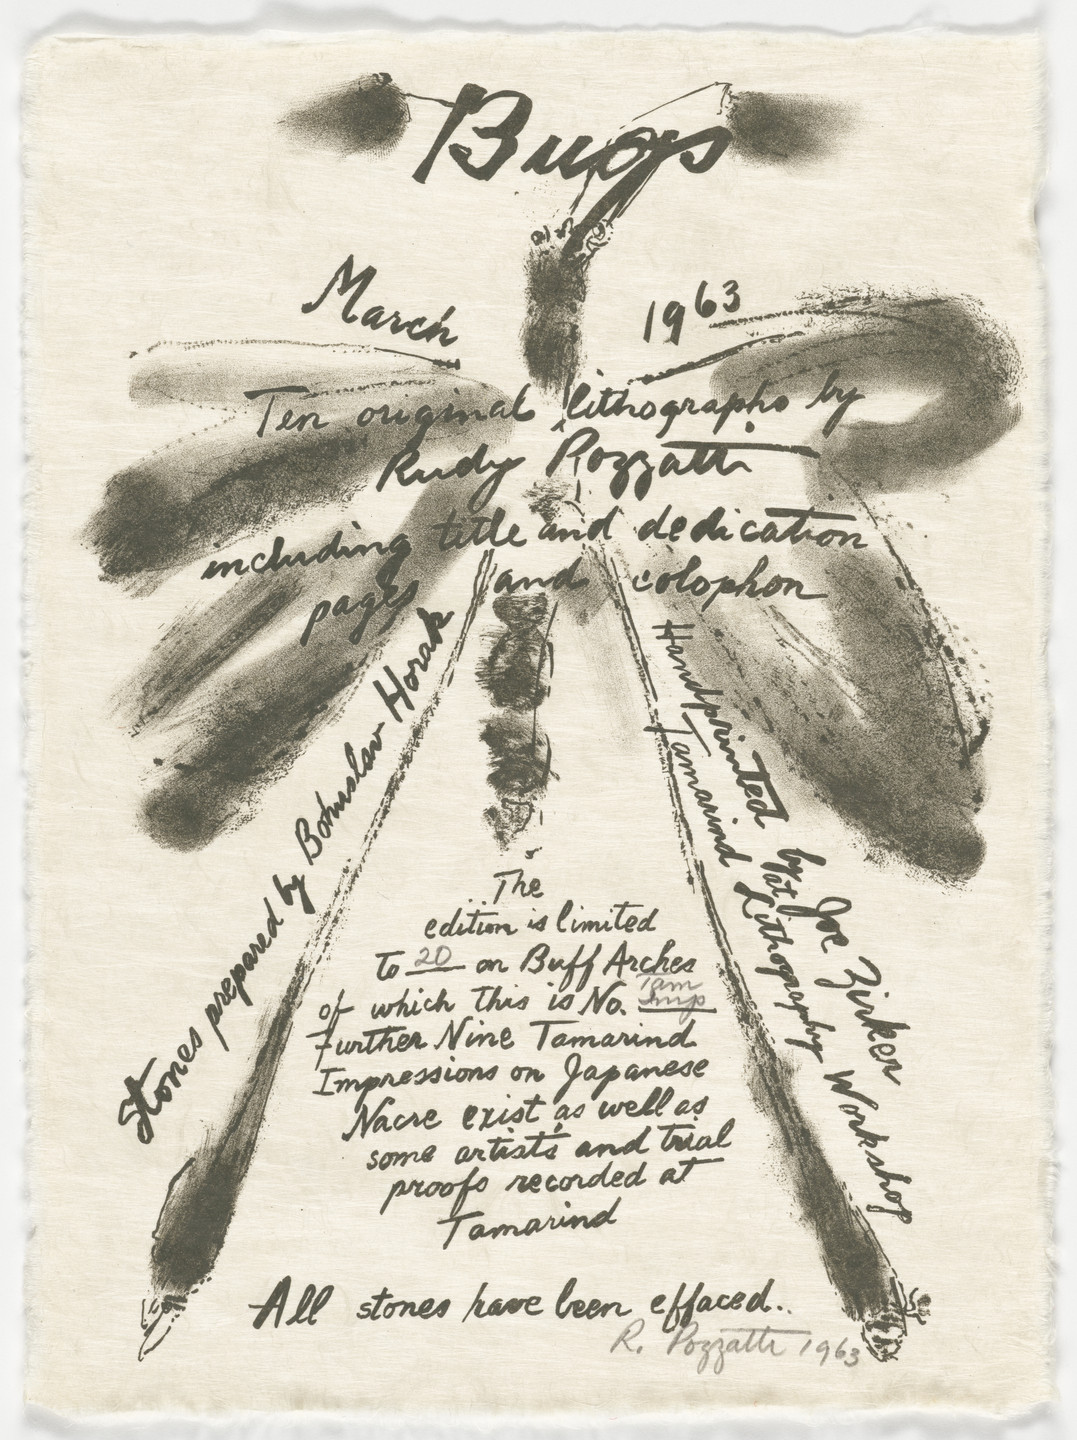 Bugs
March 1963
Ten original lithographs by
Rudy Pozzatti
including title and dedication
pages and colophon
Stones prepared by Bohuslav Horak
Handprinted by Joe Zirker
at
Tamarind Lithography Workshop
The
edition is limited
to 20 on Buff Arches
of which this is No. Tam Imp
Further Nine Tamarind
Impressions on Japanese
Nacre exist as well as
some artist's and trial
proofs recorded at
Tamarind
All stones have been effaced..
R. Pozzatti 1963